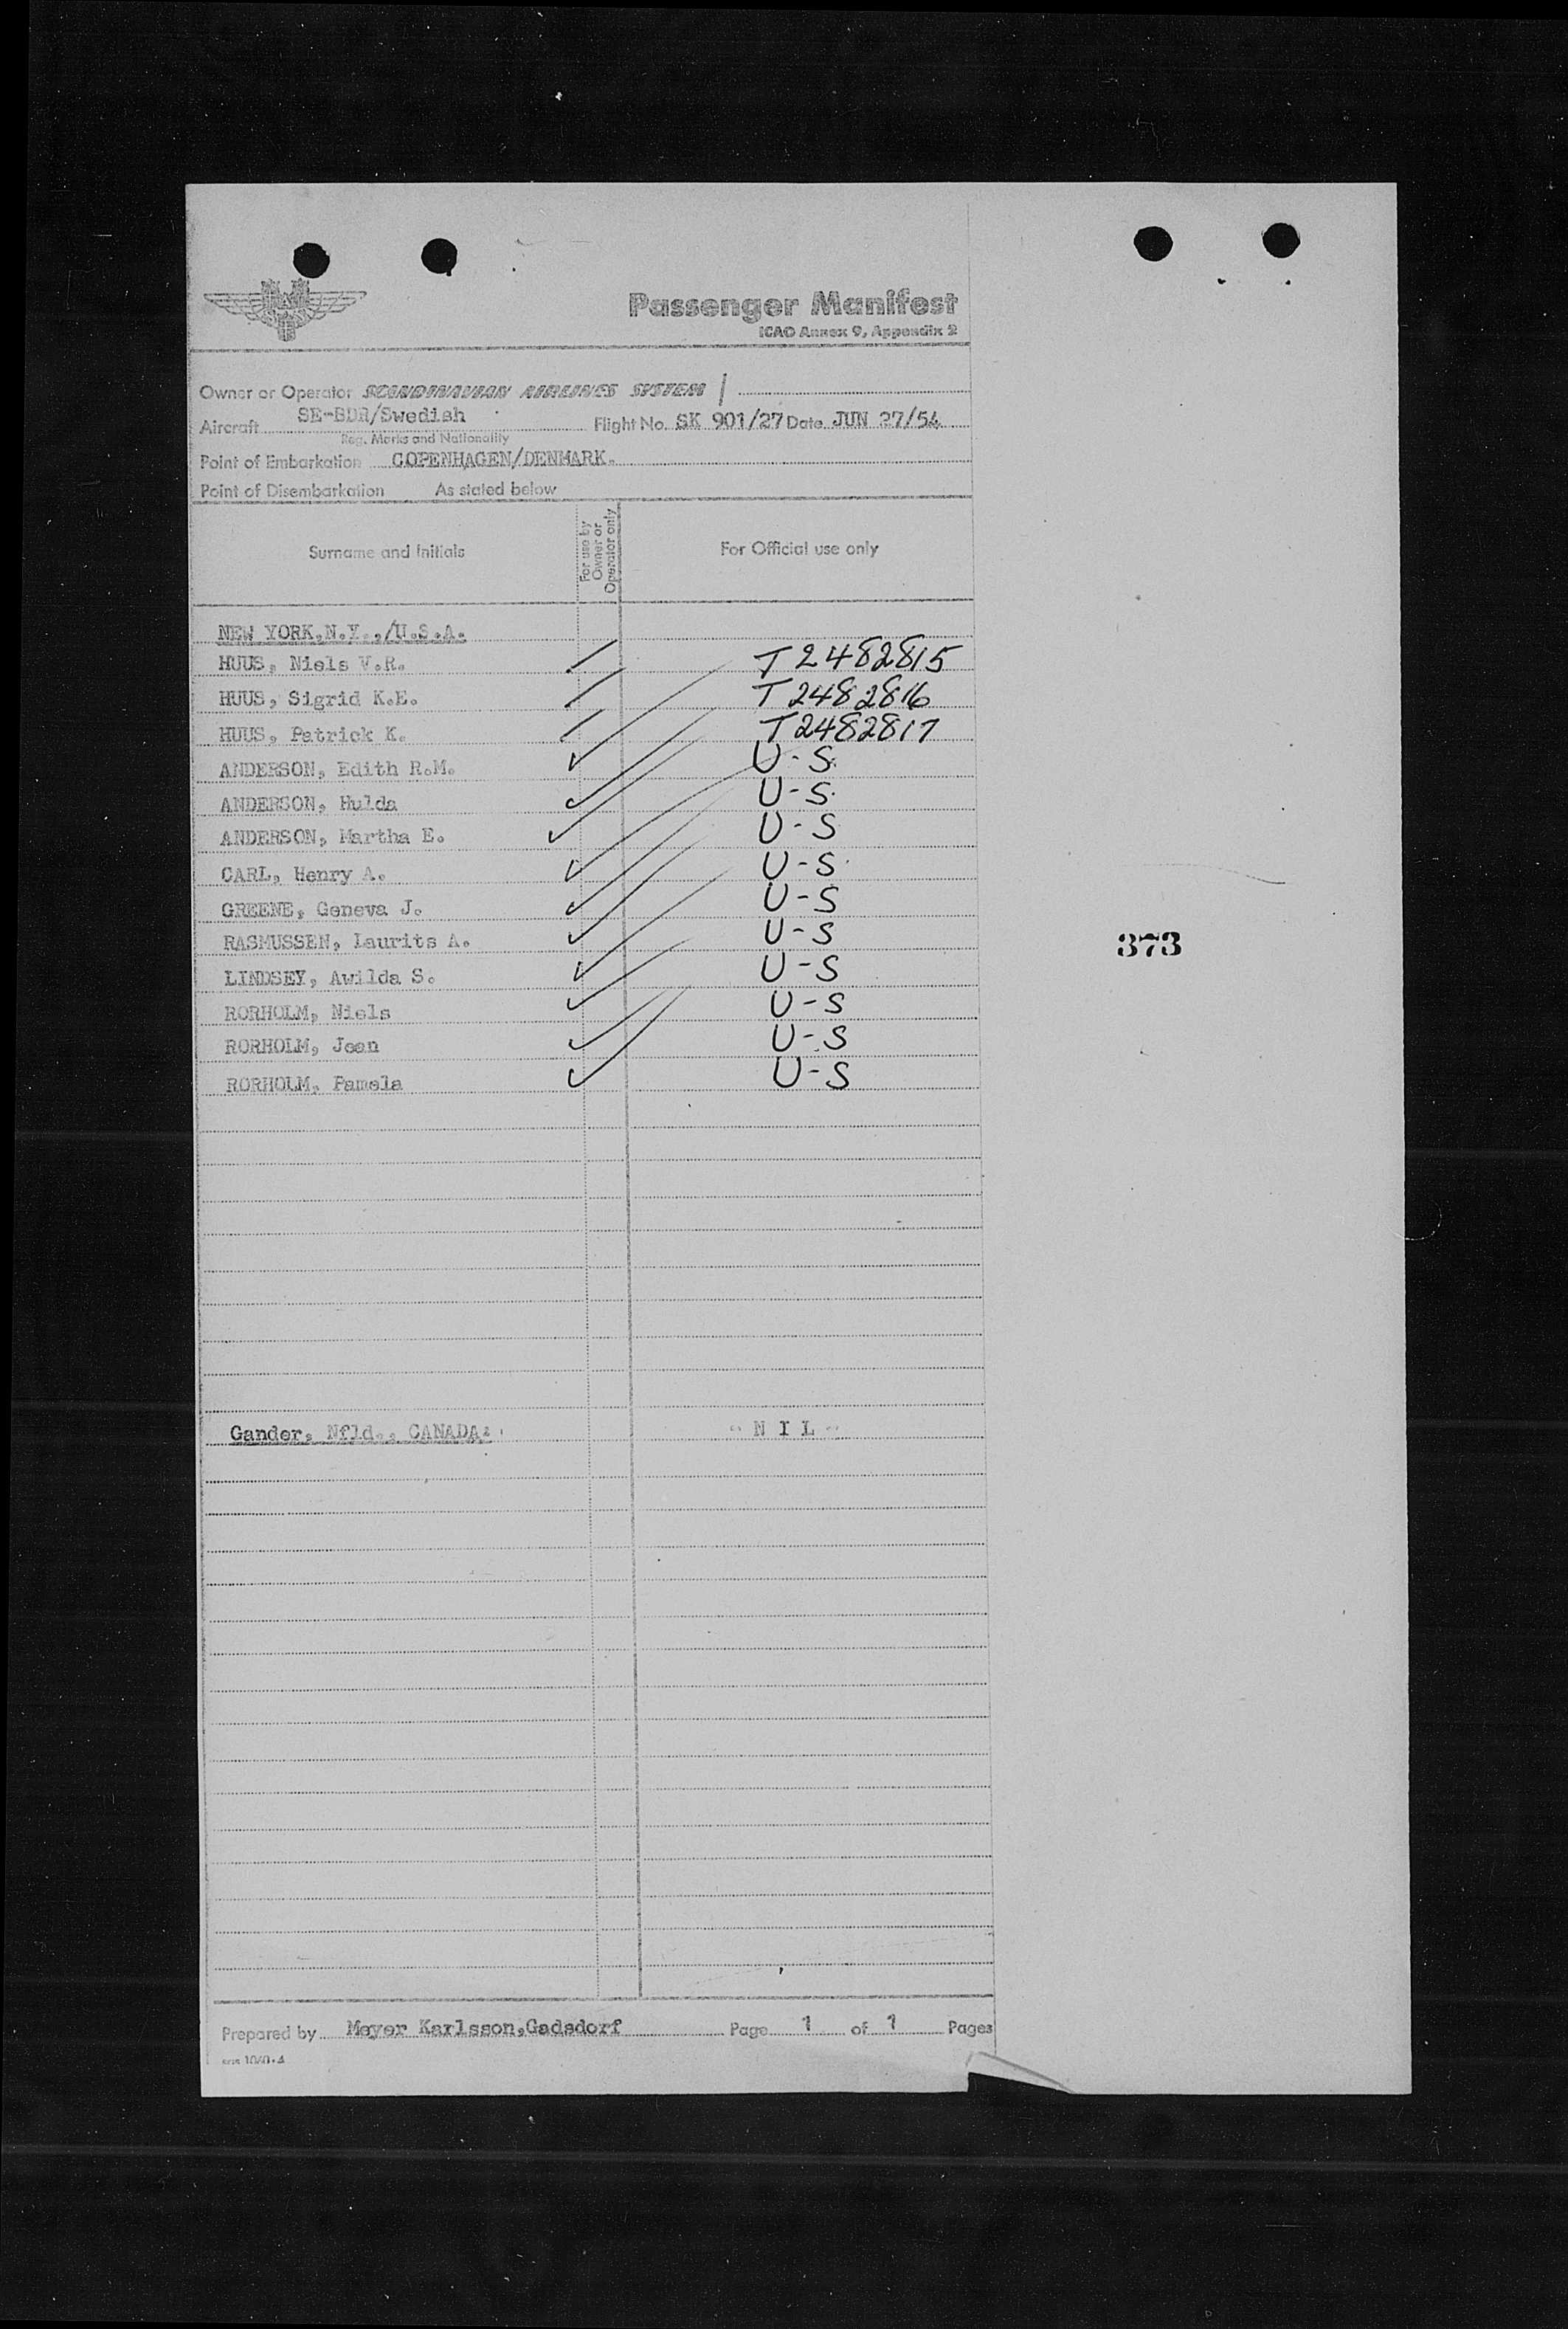 Passenger Manifest
ICAO Annex 9, Appendix 2
Owner or Operator SCANDINAVIAN AIRLINES SYSTEM
Aircraft SE-BDR/Swedish Flight No. SK 901/27 Date JUN 27/54
Reg. Marks and Nationality
Point of Embarkation COPENHAGEN/DENMARK.
Point of Disembarkation As stated below
Surname and Initials For use by Owner or Operator only For Official use only
NEW YORK,N.Y.,/U.S.A.
HUUS, Niels V.R. T2482815
HUUS, Sigrid K.E. T2482816
HUUS, Patrick K. T2482817
ANDERSON, Edith R.M. U-S.
ANDERSON, Hulda U-S.
ANDERSON, Martha E. U-S
CARL, Henry A. U-S.
GREENE, Geneva J. U-S
RASMUSSEN, Laurits A. U-S
373
LINDSEY, Awilda S. U-S
RORHOLM, Niels U-S
RORHOLM, Jean U-S
RORHOLM, Pamela U-S
Gander, Nfld., CANADA: - N I L -
Prepared by Meyer Karlsson,Gadsdorf Page 1 of 1 Pages